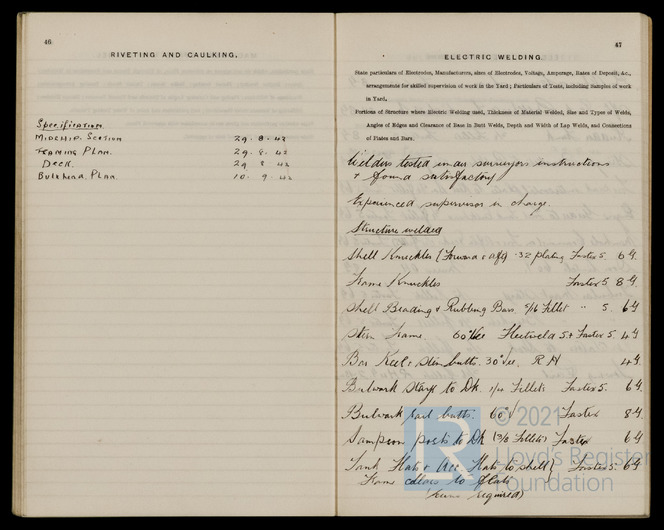 46
RIVETING AND CAULKING.
Specification
Midship. Section 29 . 8 . 42
Framing Plan. 29 . 8 . 42
Deck. 29 8 42
Bulkhead. Plan. 10 . 9 . 42
47
ELECTRIC WELDING.
State particulars of Electrodes, Manufacturers, sizes of Electrodes, Voltage, Amperage, Rates of Deposit, &c.,
arrangements for skilled supervision of work in the Yard; Particulars of Tests, including Samples of work
in Yard.
Portions of Structure where Electric Welding used, Thickness of Material Welded, Size and Types of Welds,
Angles of Edges and Clearance of Bars in Butt Welds, Depth and Width of Lap Welds, and Connections
of Plates and Bars.
Welders tested surveyors instructions
+ found satisfactory
Experienced supervisor in charge.
Structure welded
Shell Knuckles (Forward & aft) .32 plating Fastex 5. 6 G.
Frame Knuckles Fastex 5 8 G.
Shell Beading & Rubbing Bars 5/16 Fillet " 5. 6 G
Stern Frame. 60° Vee Fleetweld 5 & Fastex 5. 4 G
Bar Keel & stem butts. 30° Vee. R H 4 G.
Bulwark stays to Dk. 1/4 Fillets Fastex 5. 6 G.
Bulwark rail butts. 60° V Fastex 8 G.
Sampson posts to Dk (3/8 Fillets) Fastex 6 G
Tank Flats & Acc Flats to shell } Fastex 5. 6 G
Frame collars to flats
(where required)
© 2021
LR
Lloyd's Register
Foundation